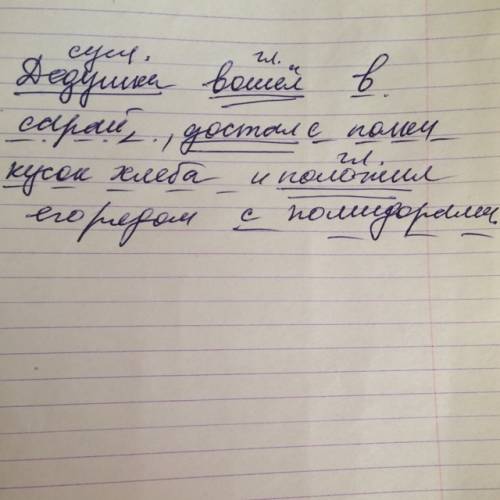 сущ. гл.
Дедушка вошёл в
сарай, достал с полки
гл.
кусок хлеба и положил
его рядом с помидорами.